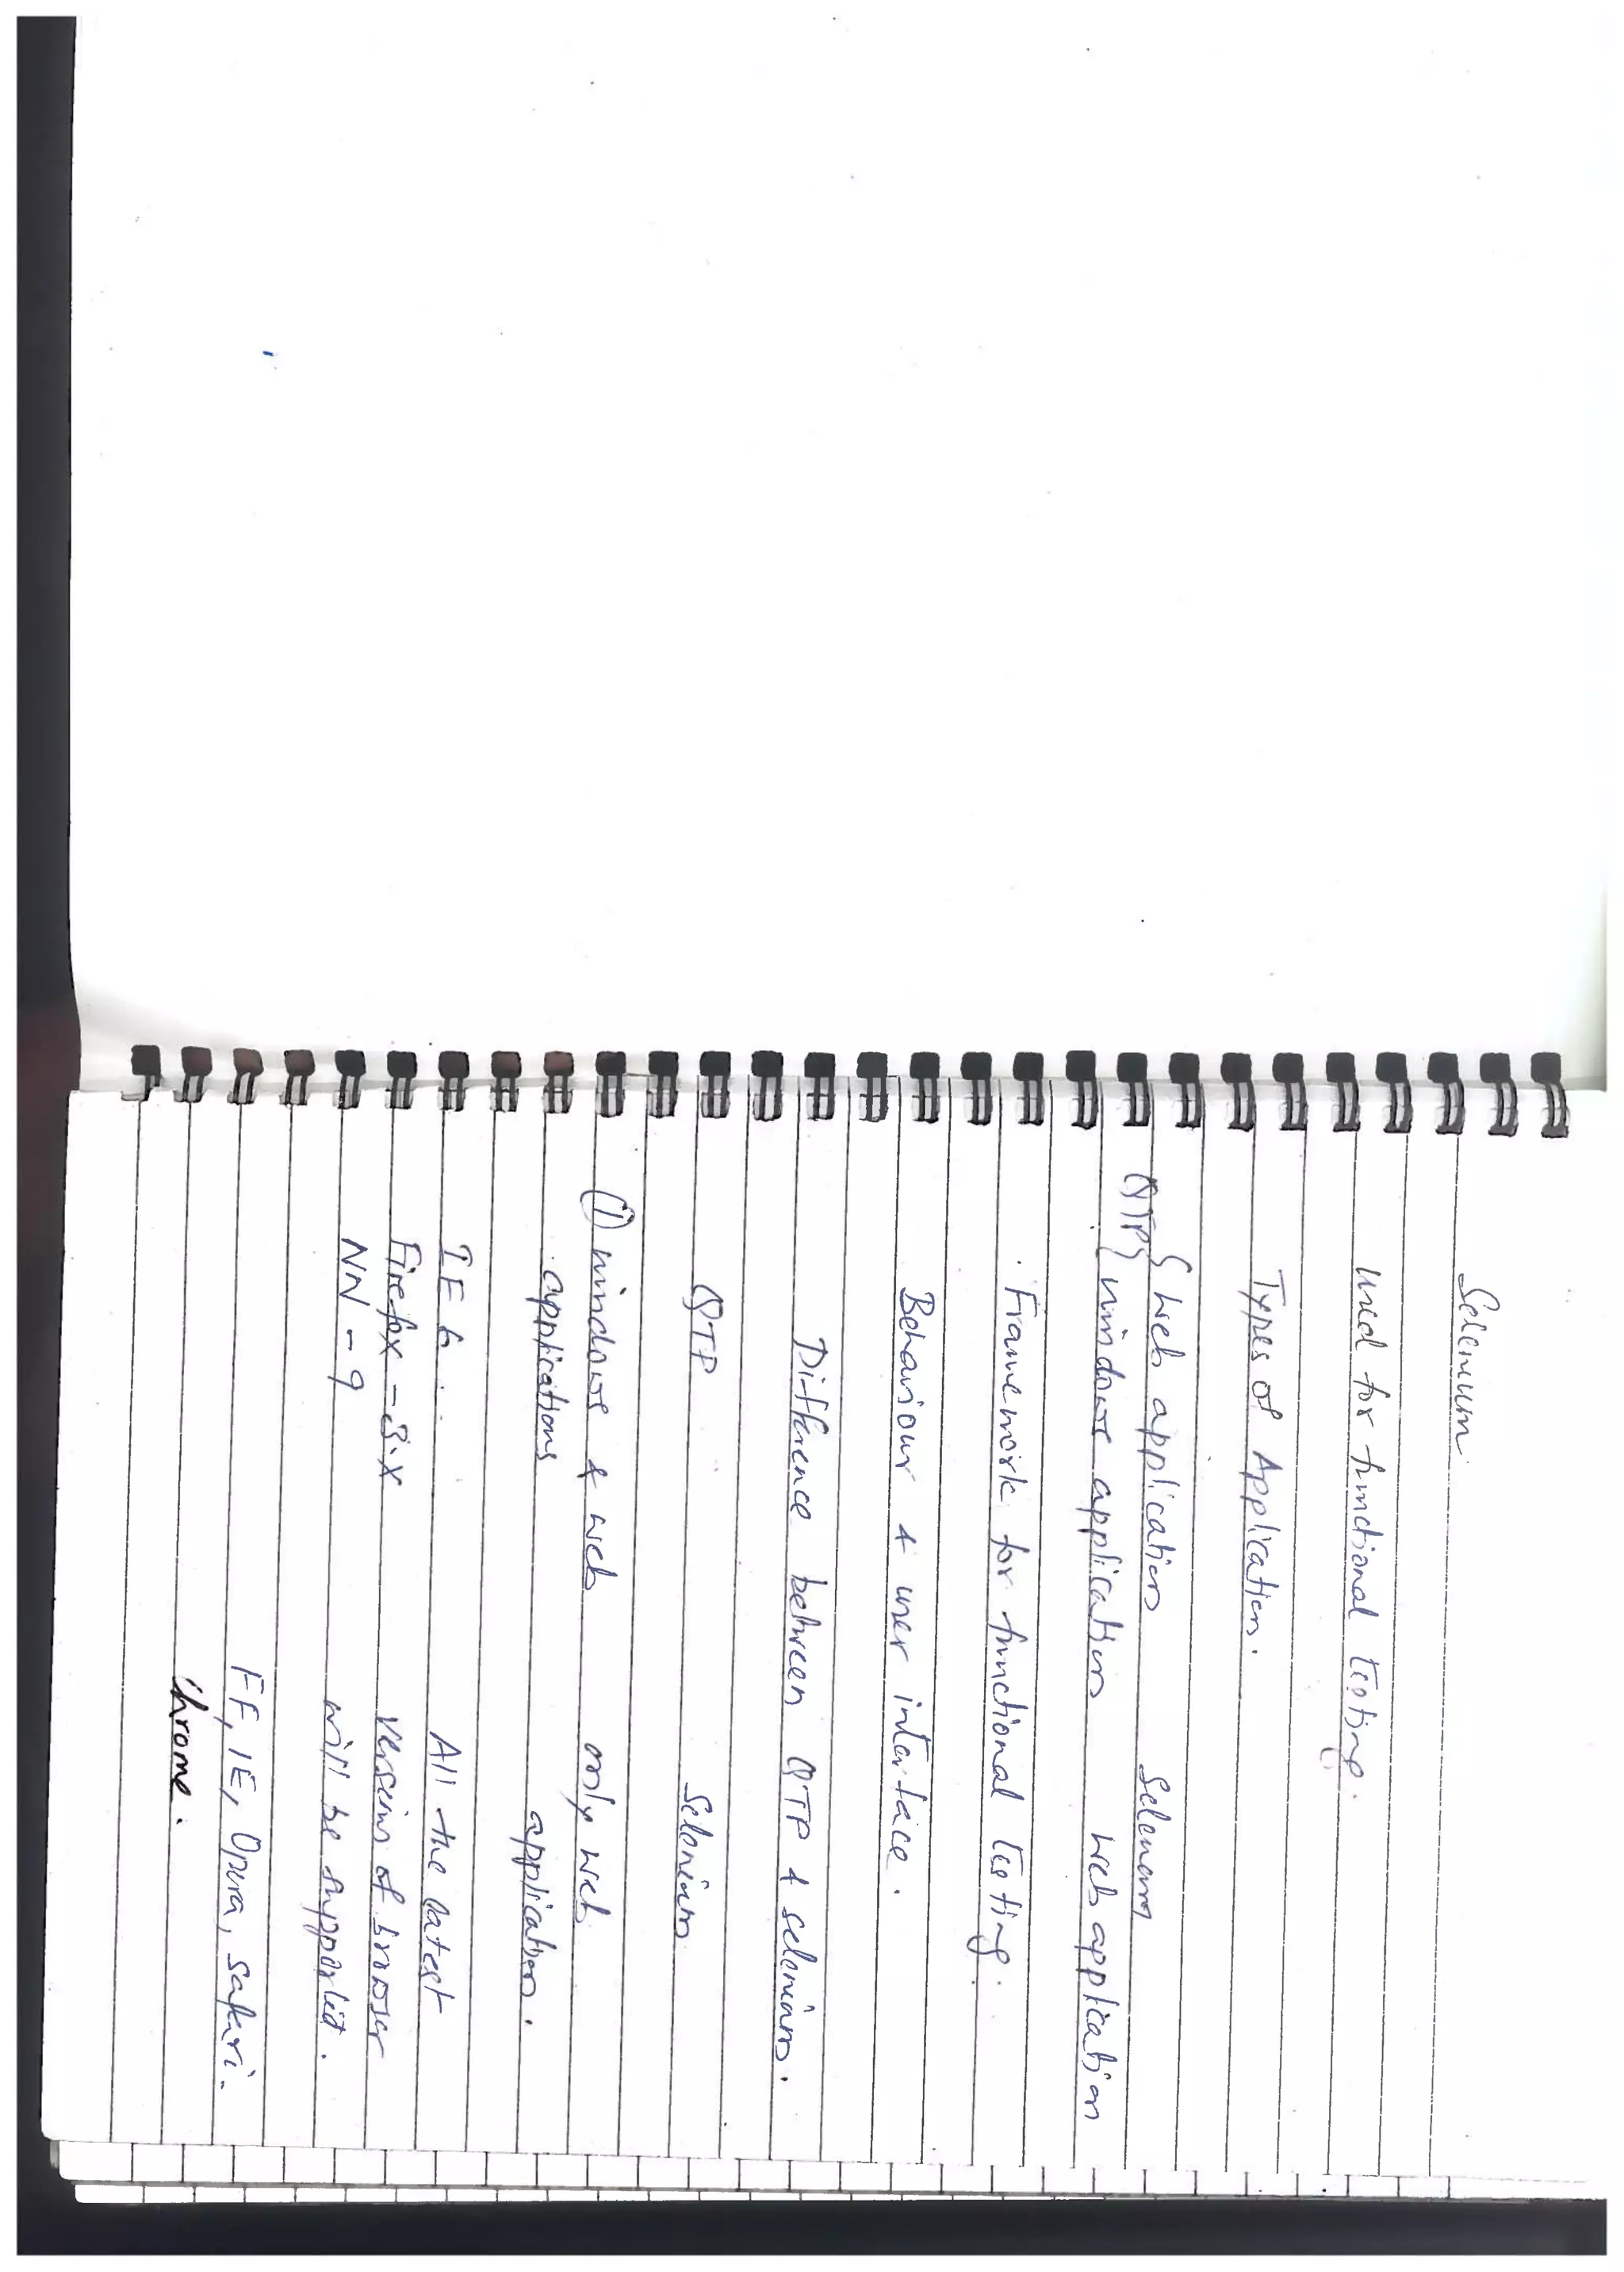 Selenium
Used for functional testing.
Types of Application.
QTP { Web application Selenium
{ windows application web application
. Framework for functional testing.
Behaviour & user interface.
Difference between QTP & selenium.
QTP Selenium
① windows & web only web
applications application.
IE 6 All the latest
Firefox - 3.x versions of browser
NN - 9 will be supported.
FF, IE, Opera, safari.
chrome.